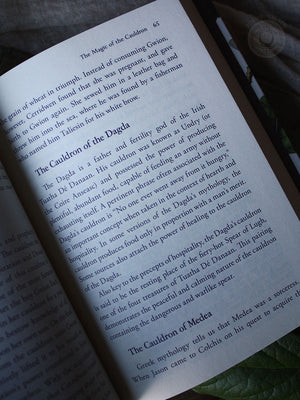 The Magic of the Cauldron 65
grain of wheat in triumph. Instead of consuming Gwion,
Cerridwen found that she was pregnant, and gave
to Gwion again. She sewed him in a leather bag and
him into the sea, where he was found by a fisherman
who named him Taliesin for his white brow.
The Cauldron of the Dagda
The Dagda is a father and fertility god of the Irish
Tuatha Dé Danaan. His cauldron was known as Undry (or
the Coire Anseasc) and possessed the power of producing
plentiful, abundant food, capable of feeding an army without
exhausting itself. A pertinent phrase often associated with the
Dagda's cauldron is "No one ever went away from it hungry,"
an important concept when taken in the context of hearth and
hospitality. In some versions of the Dagda's mythology, the
cauldron produces food only in proportion with a man's merit.
Some sources also attach the power of healing to the cauldron
of the Dagda.
Also key to the precepts of hospitality, the Dagda's cauldron
is said to be the resting place of the fiery-hot Spear of Lugh,
one of the four treasures of Tuatha Dé Danaan. This pairing
demonstrates the peaceful and calming nature of the cauldron
containing the dangerous and warlike spear.
The Cauldron of Medea
Greek mythology tells us that Medea was a sorceress.
When Jason came to Colchis on his quest to acquire